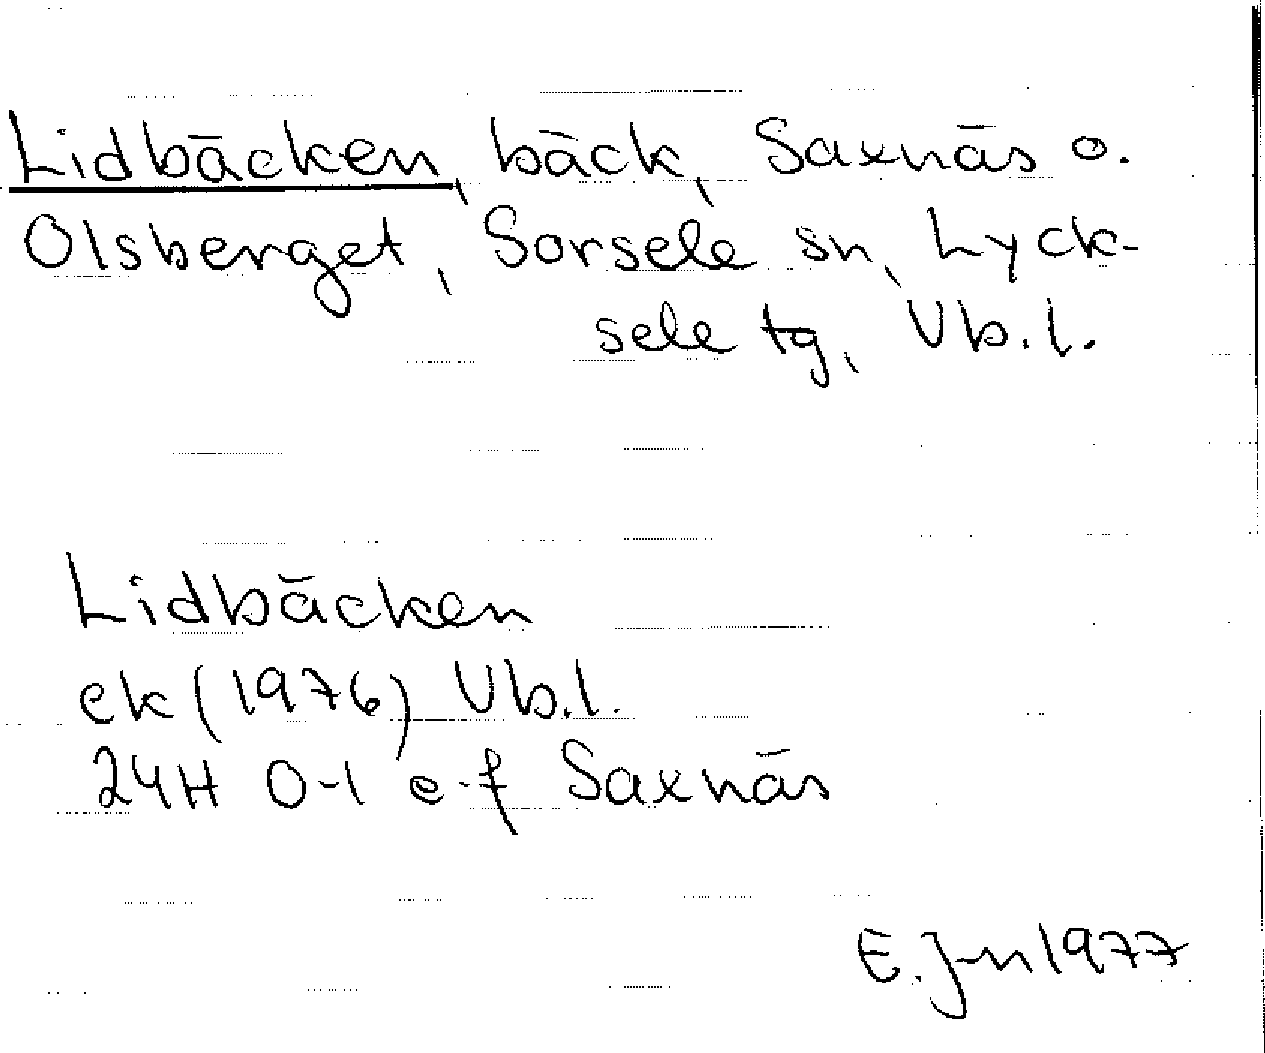 Lidbäcken, bäck, Saxnäs o.
Olsberget, Sorsele sn, Lyck-
sele tg, Vb.l.
Lidbäcken
ek (1976) Vb.l.
24H 0-1 e-f Saxnäs
E. J-n 1977